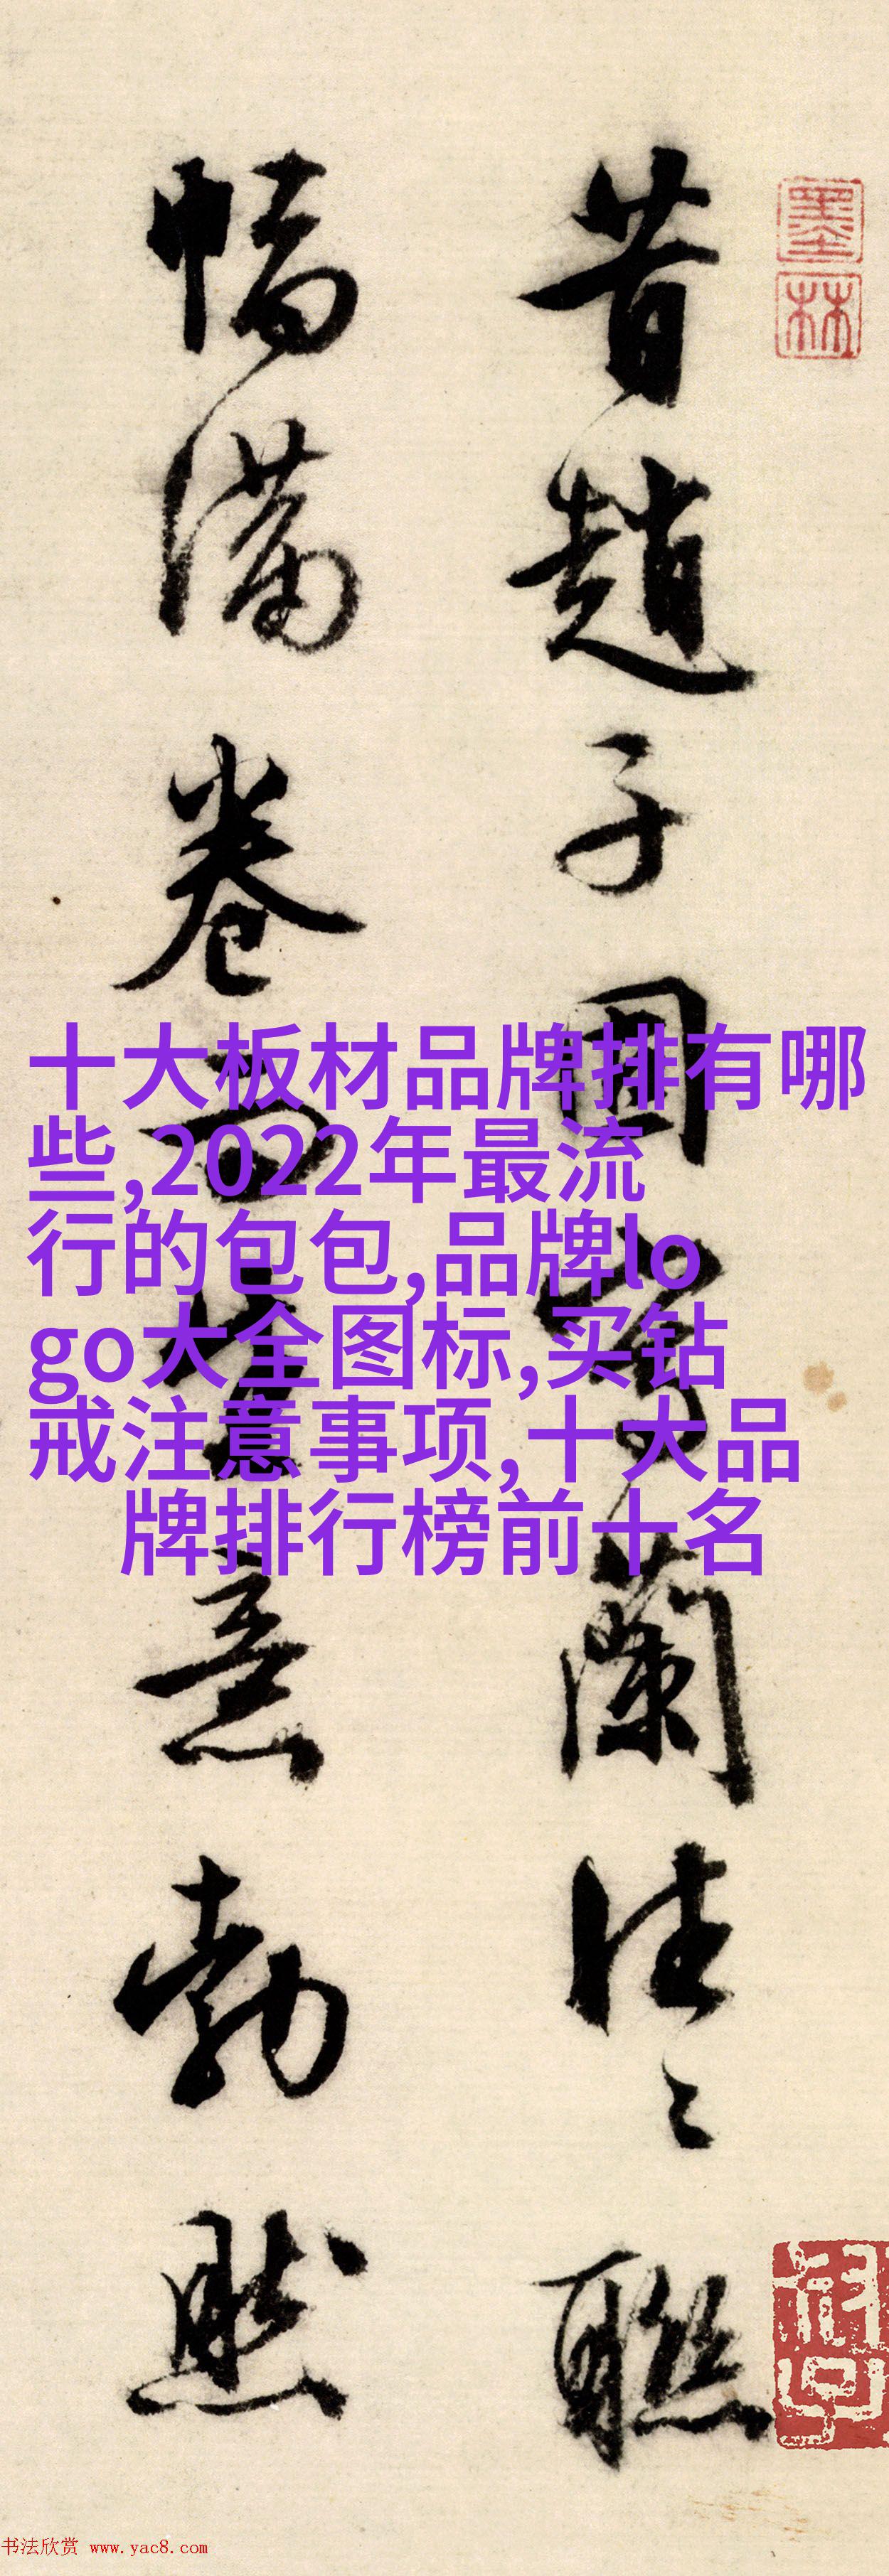 昔趙子固寫蘭往々聯
幅滿卷而其意勃然
墨林
十大板材品牌排有哪
些,2022年最流
行的包包,品牌lo
go大全图标,买钻
戒注意事项,十大品
牌排行榜前十名
书法欣赏 www.yac8.com